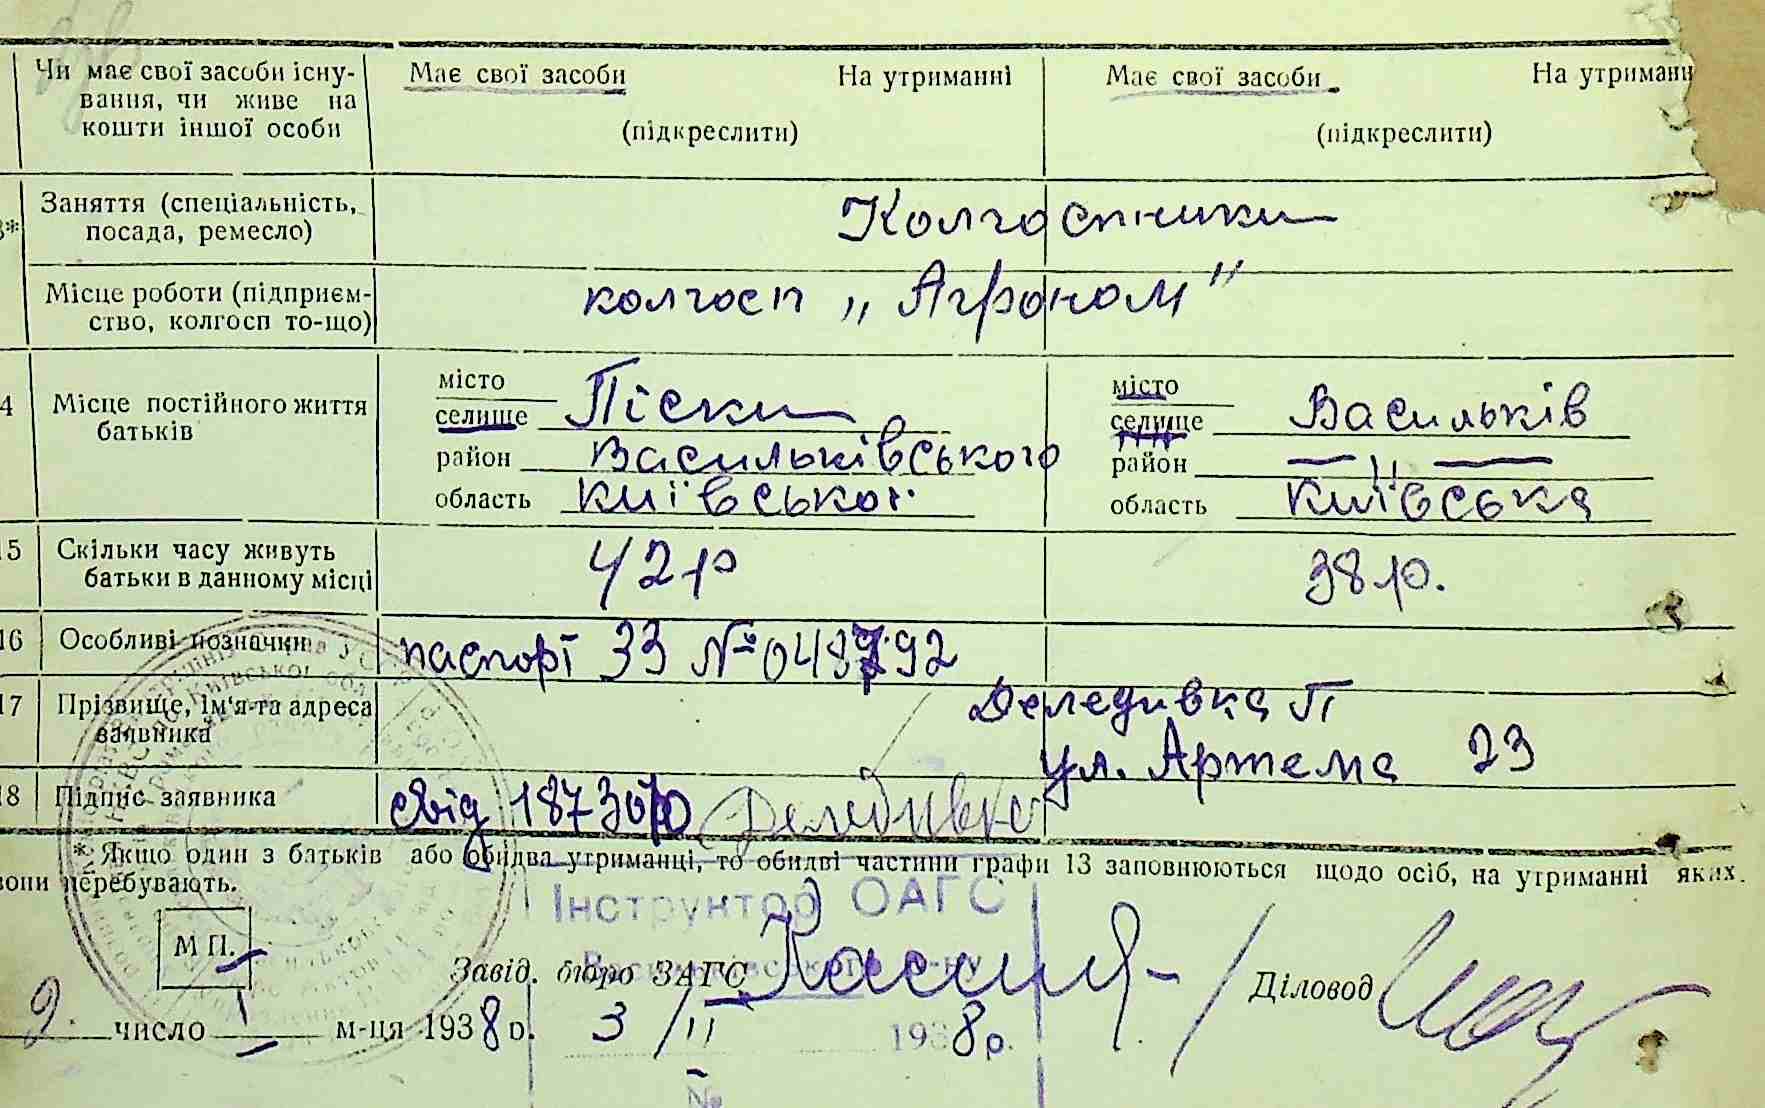 Чи має свої засоби існу-
вання, чи живе на
кошти іншої особи
Має свої засоби На утриманні
(підкреслити)
Має свої засоби На утриманн
(підкреслити)
3*
Заняття (спеціальність,
посада, ремесло)
Колгоспники
Місце роботи (підприєм-
ство, колгосп то-що)
колгосп „Агроном"
4
Місце постійного життя
батьків
місто
селище Піски
район Васильківського
область Київської
місто
селище Васильків
район — " —
область Київська
15
Скільки часу живуть
батьки в данному місці
42 р
38 р.
16
Особливі позначки
паспорт ЗЗ №
17
Прізвище, ім'я та адреса
заявника
Деледивка П
ул. Артема 23
18
Підпис заявника
свід 187
Деледивка
* Якщо один з батьків або обидва утриманці, то обидві частини графи 13 заповнюються щодо осіб, на утриманні яких
вони перебувають.
Інструктор ОАГС
М П.
Завід. бюро ЗАГС
Діловод
9. число I м-ця 1938 р.
3/II 1938 р.
№